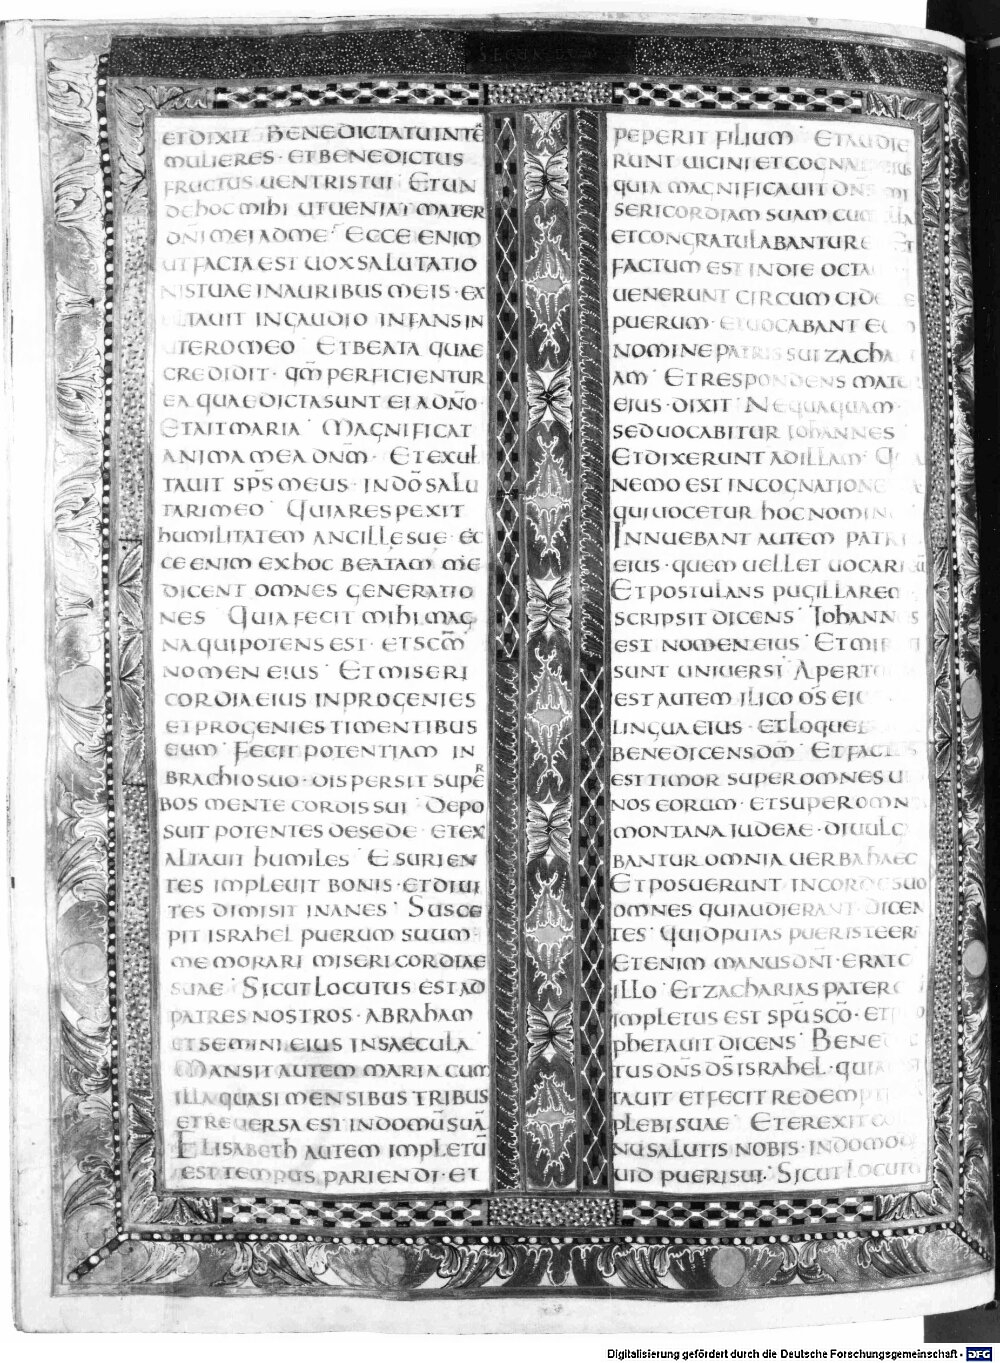 ET DIXIT BENEDICTA TU INTĒ
MULIERES · ET BENEDICTUS
FRUCTUS UENTRIS TUI · ET UN
DE hOC MIhI UT UENIAT MATER
DN̄I MEI AD ME · ECCE ENIM
UT FACTA EST UOX SALUTATIO
NIS TUAE IN AURIBUS MEIS · EX
ULTAUIT IN GAUDIO INFANS IN
UTERO MEO · ET BEATA QUAE
CREDIDIT · QM̄ PERFICIENTUR
EA QUAE DICTA SUNT EI A DN̄O ·
ET AIT MARIA · MAGNIFICAT
ANIMA MEA DN̄M · ET EXUL
TAUIT SPS̄ MEUS · IN DŌ SALU
TARI MEO · QUIA RESPEXIT
hUMILITATEM ANCILLĘ SUĘ · EC
CE ENIM EX hOC BEATAM ME
DICENT OMNES GENERATIO
NES · QUIA FECIT MIhI MAG
NA QUI POTENS EST · ET SCM̄
NOMEN EIUS · ET MISERI
CORDIA EIUS IN PROGENIES
ET PROGENIES TIMENTIBUS
EUM · FECIT POTENTIAM IN
BRAChIO SUO · DISPERSIT SUPER
BOS MENTE CORDIS SUI · DEPO
SUIT POTENTES DE SEDE · ET EX
ALTAUIT hUMILES · ESURIEN
TES IMPLEUIT BONIS · ET DIUI
TES DIMISIT INANES · SUSCE
PIT ISRAhEL PUERUM SUUM ·
MEMORARI MISERICORDIAE
SUAE · SICUT LOCUTUS EST AD
PATRES NOSTROS · ABRAhAM
ET SEMINI EIUS IN SAECULA ·
MANSIT AUTEM MARIA CUM
ILLA QUASI MENSIBUS TRIBUS
ET REUERSA EST IN DOMŪ SUĀ
ELISABETh AUTEM IMPLETŪ
EST TEMPUS PARIENDI · ET
PEPERIT FILIUM · ET AUDIE
RUNT UICINI ET COGNATI EIUS
QUIA MAGNIFICAUIT DN̄S MI
SERICORDIAM SUAM CUM ILLA
ET CONGRATULABANTUR EI · ET
FACTUM EST IN DIE OCTA
UENERUNT CIRCUMCIDERE
PUERUM · ET UOCABANT EUM
NOMINE PATRIS SUI ZAChA
AM · ET RESPONDENS MATER
EIUS · DIXIT · NEQUAQUAM ·
SED UOCABITUR IOhANNES
ET DIXERUNT AD ILLAM · QUIA
NEMO EST IN COGNATIONE
QUI UOCETUR hOC NOMINE
INNUEBANT AUTEM PATRI
EIUS · QUEM UELLET UOCARI EŪ
ET POSTULANS PUGILLAREM
SCRIPSIT DICENS · IOhANNES
EST NOMEN EIUS · ET MIRATI
SUNT UNIUERSI · APERTUM
EST AUTEM ILICO OS EIUS
LINGUA EIUS · ET LOQUEB
BENEDICENS DM̄ · ET FACTUS
EST TIMOR SUPER OMNES UICI
NOS EORUM · ET SUPER OMNIA
MONTANA IUDEAE · DIUULGA
BANTUR OMNIA UERBA hAEC
ET POSUERUNT IN CORDE SUO
OMNES QUI AUDIERANT · DICEN
TES · QUID PUTAS PUER ISTE ERIT
ETENIM MANUS DN̄I · ERAT C
ILLO · ET ZAChARIAS PATER
IMPLETUS EST SPŪ SCŌ · ET PRO
PhETAUIT DICENS · BENEDIC
TUS DN̄S DS̄ ISRAhEL · QUIA
TAUIT ET FECIT REDEMPTI
PLEBI SUAE · ET EREXIT CO
NU SALUTIS NOBIS · IN DOMO
UID PUERI SUI · SICUT LOCUTU
Digitalisierung gefördert durch die Deutsche Forschungsgemeinschaft - DFG